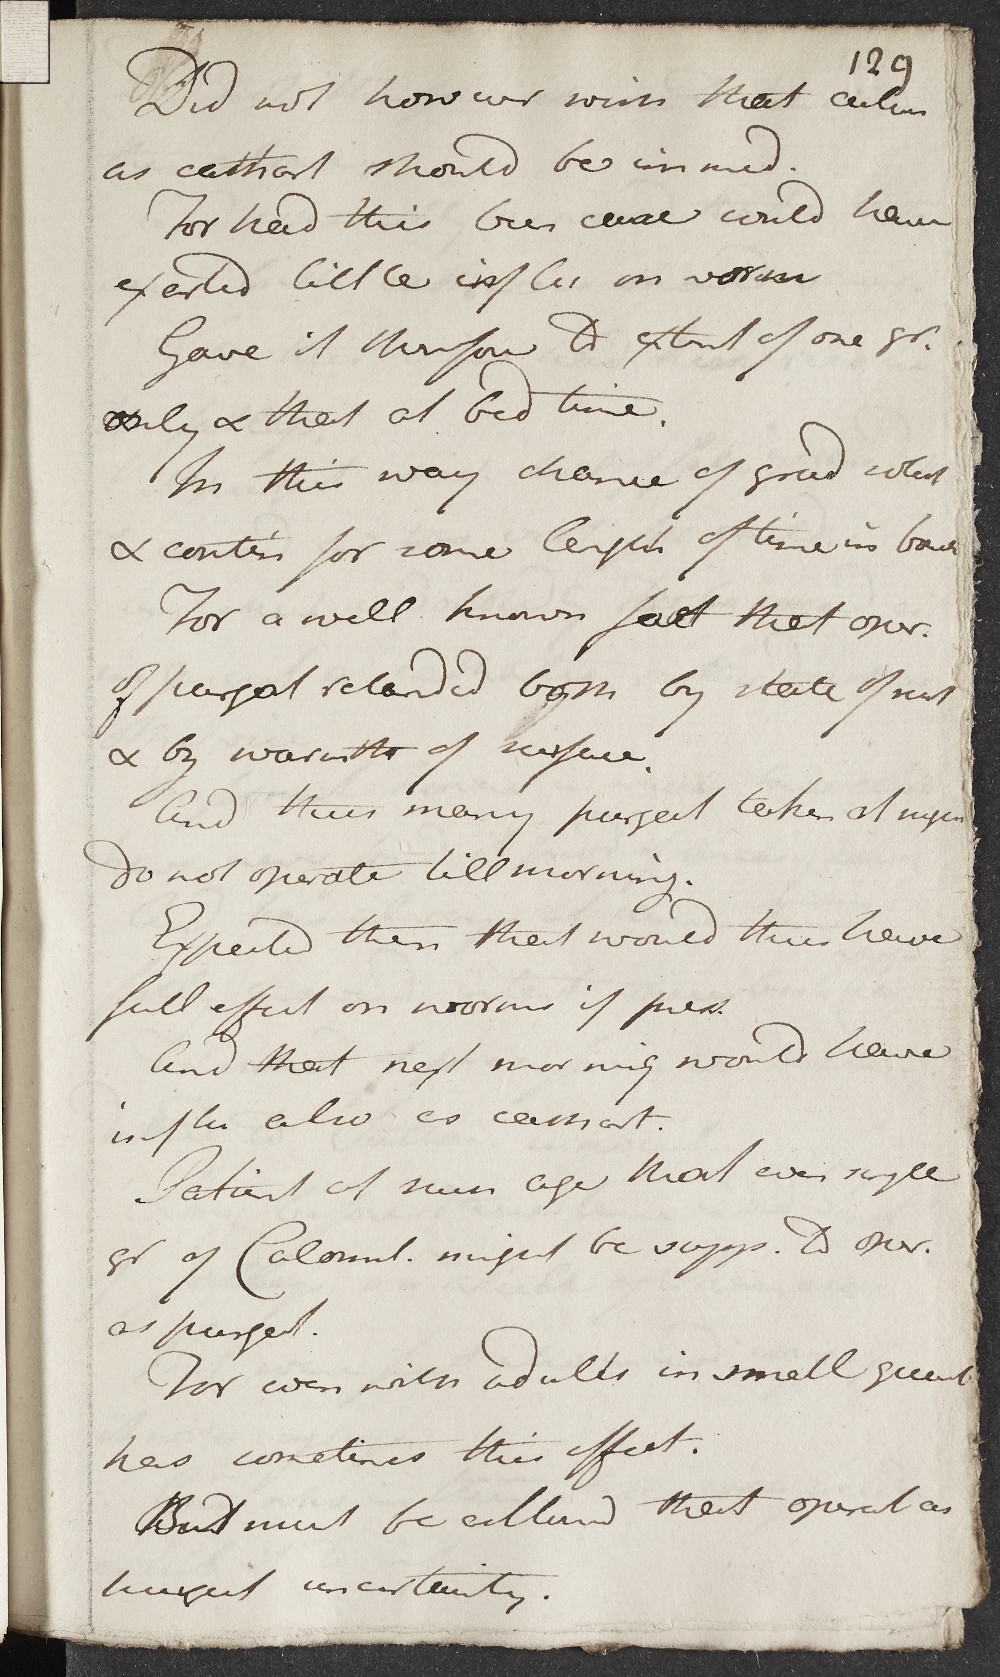 129
Did not however wish that action
as cathart should be immed.
For had this been case could have
exerted little influ on worm
Gave it therefore to extent of one gr.
only & that at bed time.
In this way chance of grad solut
& contin for some length of time in bowe
For a well known fact that oper.
of purgat retarded both by state of rest
& by warmth of surface.
And thus many purgat taken at night
do not operate till morning.
Expected then that would thus have
full effect on worms if pres.
And that next morning would have
influ also as cathart.
Patient at such age that even single
gr of Calomel. might be supp. to oper.
as purgat.
For even with adults in small quant
has sometimes this effect.
But must be allowed that operat as
purgat uncertainty.